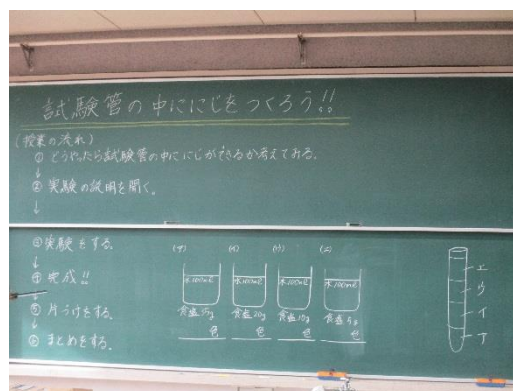 試験管の中ににじをつくろう!!
(授業の流れ)
① どうやったら試験管の中ににじができるか考えてみる。
↓
② 実験の説明を聞く。
↓
③ 実験をする。
↓
④ 完成!!
↓
⑤ 片づけをする。
↓
⑥ まとめをする。
(ア) (イ) (ウ) (エ)
水100mL 水100mL 水100mL 水100mL
食塩35g 食塩20g 食塩10g 食塩5g
色 色 色 色
エ
ウ
イ
ア